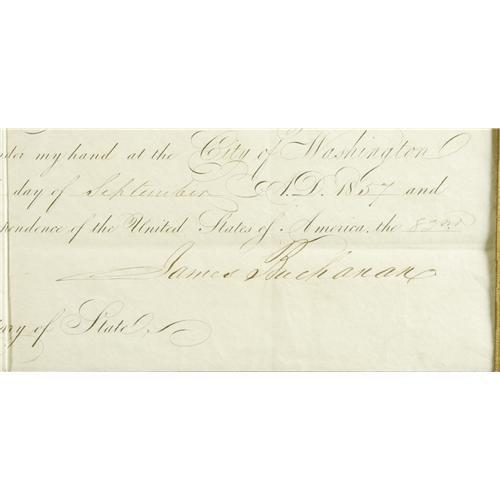 nder my hand at the City of Washington
day of September A.D. 1857 and
endence of the United States of America, the 82nd
James Buchanan
ary of State.